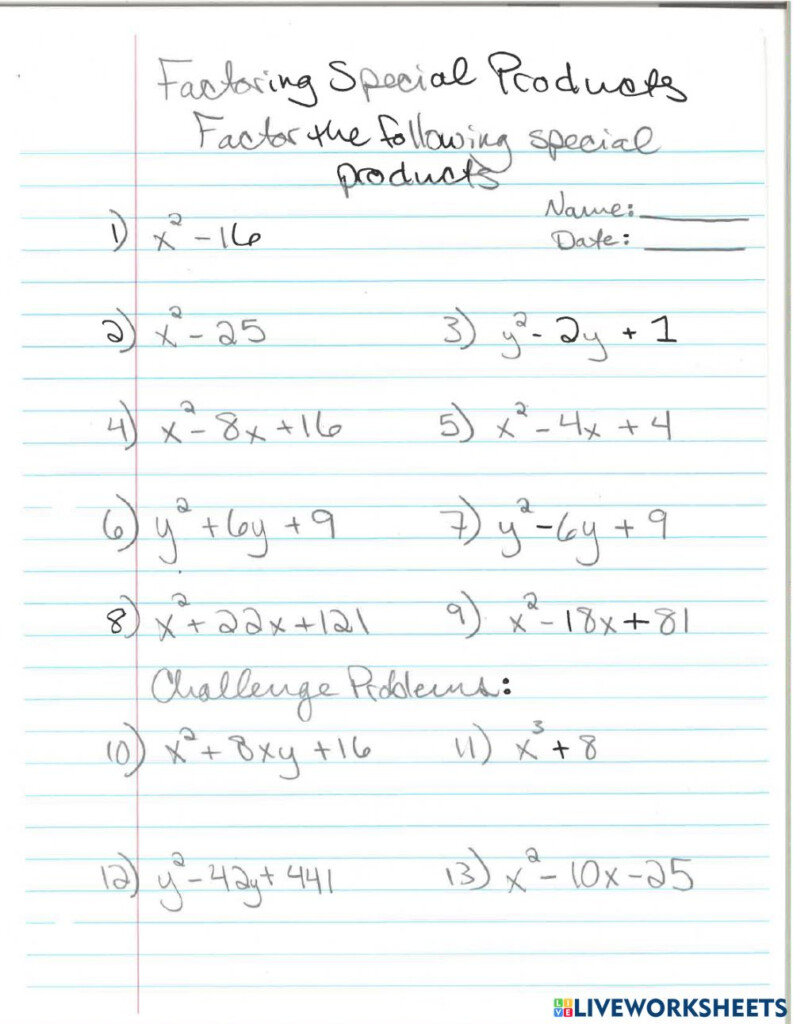 Factoring Special Products
Factor the following special
products
Name:
Date:
1) x² - 16
2) x² - 25
3) y² - 2y + 1
4) x² - 8x + 16
5) x² - 4x + 4
6) y² + 6y + 9
7) y² - 6y + 9
8) x² + 22x + 121
9) x² - 18x + 81
Challenge Problems:
10) x² + 8xy + 16
11) x³ + 8
12) y² - 42y + 441
13) x² - 10x - 25
LIVEWORKSHEETS